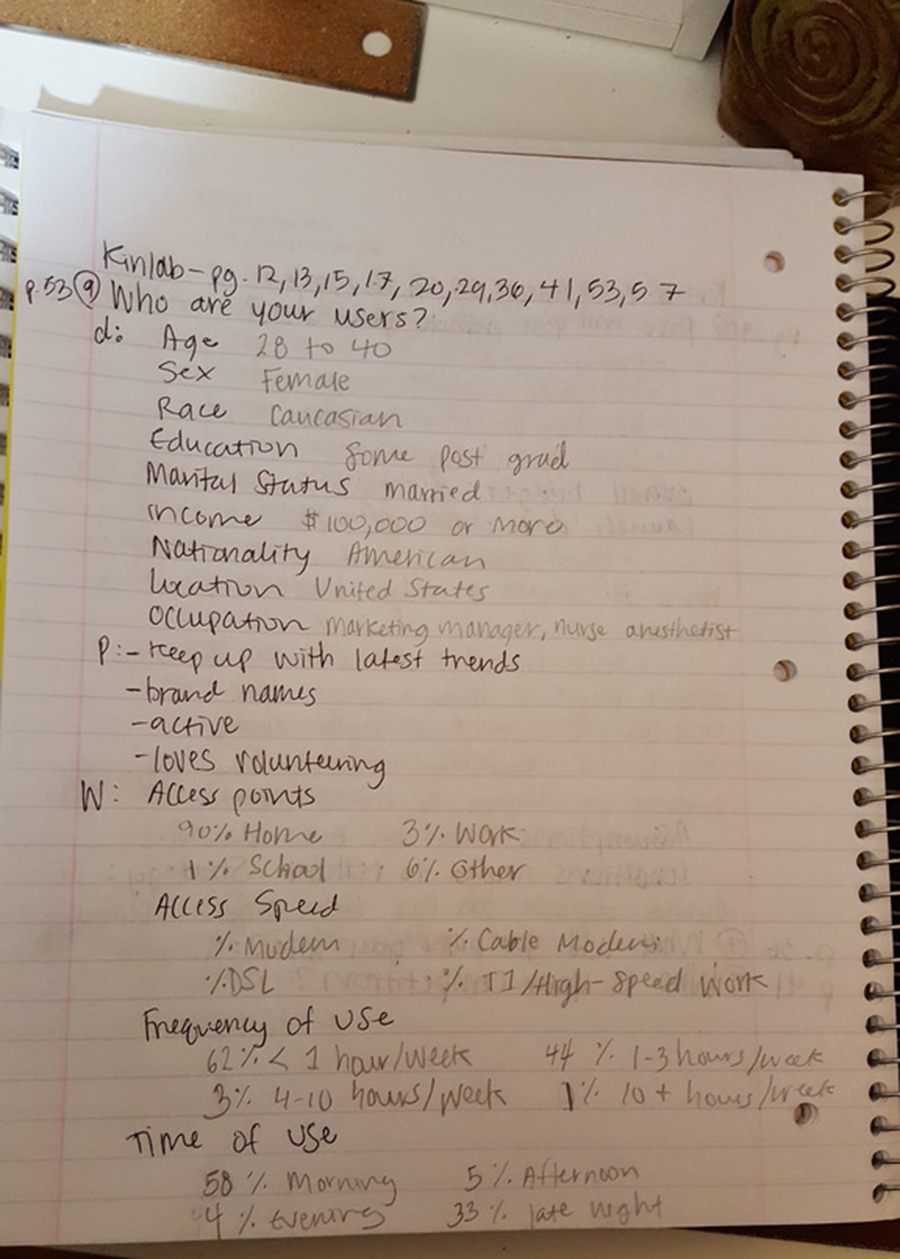 Kinlab - pg. 12, 13, 15, 17, 20, 29, 36, 41, 53, 57
p.53 9 Who are your users?
d: Age 28 to 40
Sex Female
Race Caucasian
Education Some post grad
Marital Status married
Income $100,000 or more
Nationality American
Location United States
Occupation marketing manager, nurse anesthetist
P: - Keep up with latest trends
- brand names
- active
- loves volunteering
W: Access points
90% Home 3% Work
1% School 6% Other
Access Speed
% Modem % Cable Modem
% DSL % T1/High-Speed Work
Frequency of Use
62% < 1 hour/week 44 % 1-3 hours/week
3% 4-10 hours/week 1% 10+ hours/week
Time of Use
58 % Morning 5 % Afternoon
4 % Evening 33 % late night